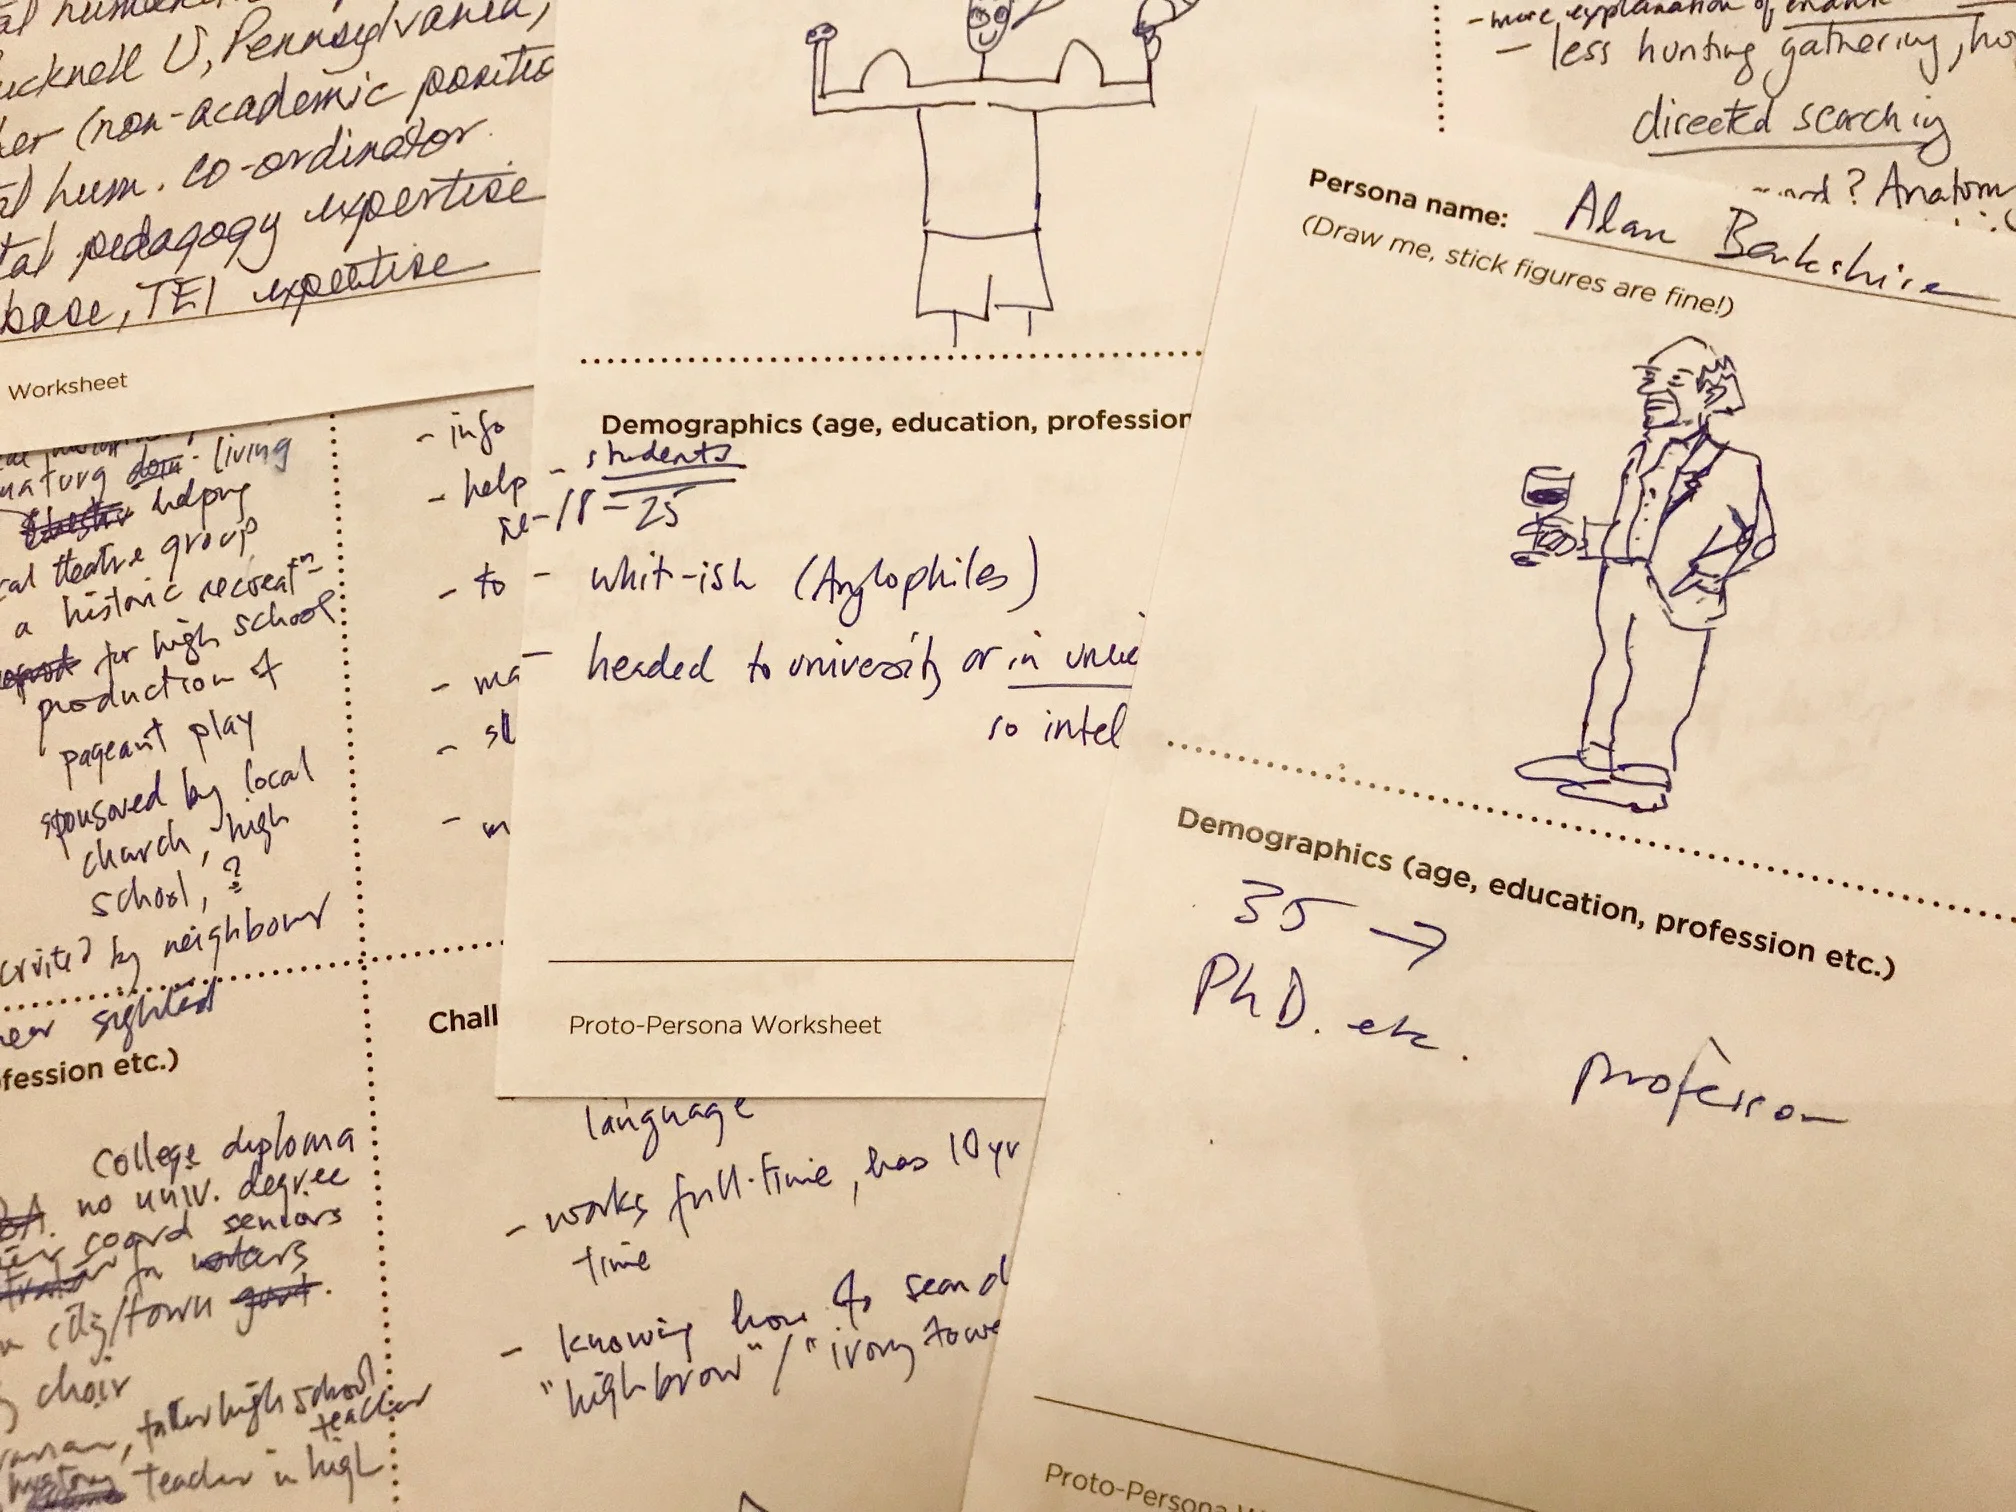 ucknell U, Pennsylvania,
(non-academic
hum. co-ordinator.
pedagogy expertise
base, TEI expertise
Worksheet
living
helping
theatre group
a historic recreat
for high school
production of
pageant play
sponsored by local
church, high
school, ?
by neighbour
sighted
fession etc.)
College diploma
no univ. degree
coord seniors
city/town govt.
choir
father high school
teacher
teacher in high
- info
- help
- to
- ma
- sl
Chall
Demographics (age, education, profession
- students
18-25
- whit-ish (Anglophiles)
- headed to university or in unive
so intel
Proto-Persona Worksheet
language
- works full-time, has 10 yr
time
- knowing how to
"highbrow"/"ivory towe
- more explanation of
- less hunting gathering,
directed searching
? Anatom
Persona name: Alan Berkshire
(Draw me, stick figures are fine!)
Demographics (age, education, profession etc.)
35 →
PhD. etc.
professor
Proto-Persona W